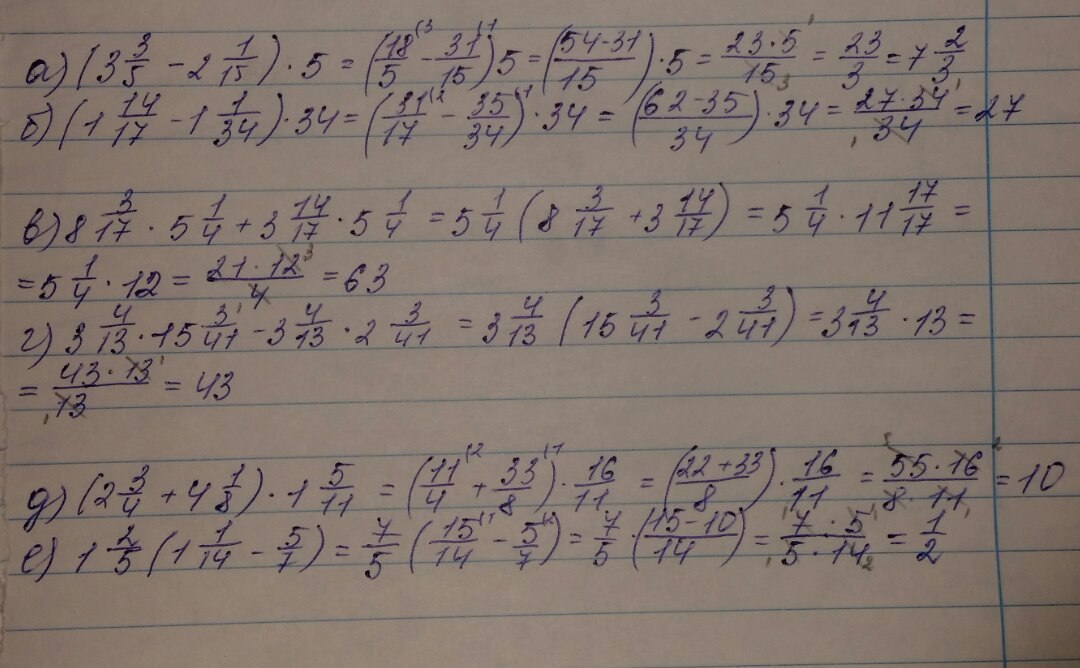 а) (3 3/5 - 2 1/15) · 5 = (18/5 - 31/15) 5 = (54-31/15) · 5 = 23·5/15 = 23/3 = 7 2/3
б) (1 14/17 - 1 1/34) · 34 = (31/17 - 35/34) · 34 = (62-35/34) · 34 = 27·34/34 = 27
в) 8 3/17 · 5 1/4 + 3 14/17 · 5 1/4 = 5 1/4 (8 3/17 + 3 14/17) = 5 1/4 · 11 17/17 =
= 5 1/4 · 12 = 21·12/4 = 63
г) 3 4/13 · 15 3/41 - 3 4/13 · 2 3/41 = 3 4/13 (15 3/41 - 2 3/41) = 3 4/13 · 13 =
= 43·13/13 = 43
д) (2 3/4 + 4 1/8) · 1 5/11 = (11/4 + 33/8) · 16/11 = (22+33/8) · 16/11 = 55·16/8·11 = 10
е) 1 2/5 (1 1/14 - 5/7) = 7/5 (15/14 - 5/7) = 7/5 · (15-10/14) = 7·5/5·14 = 1/2